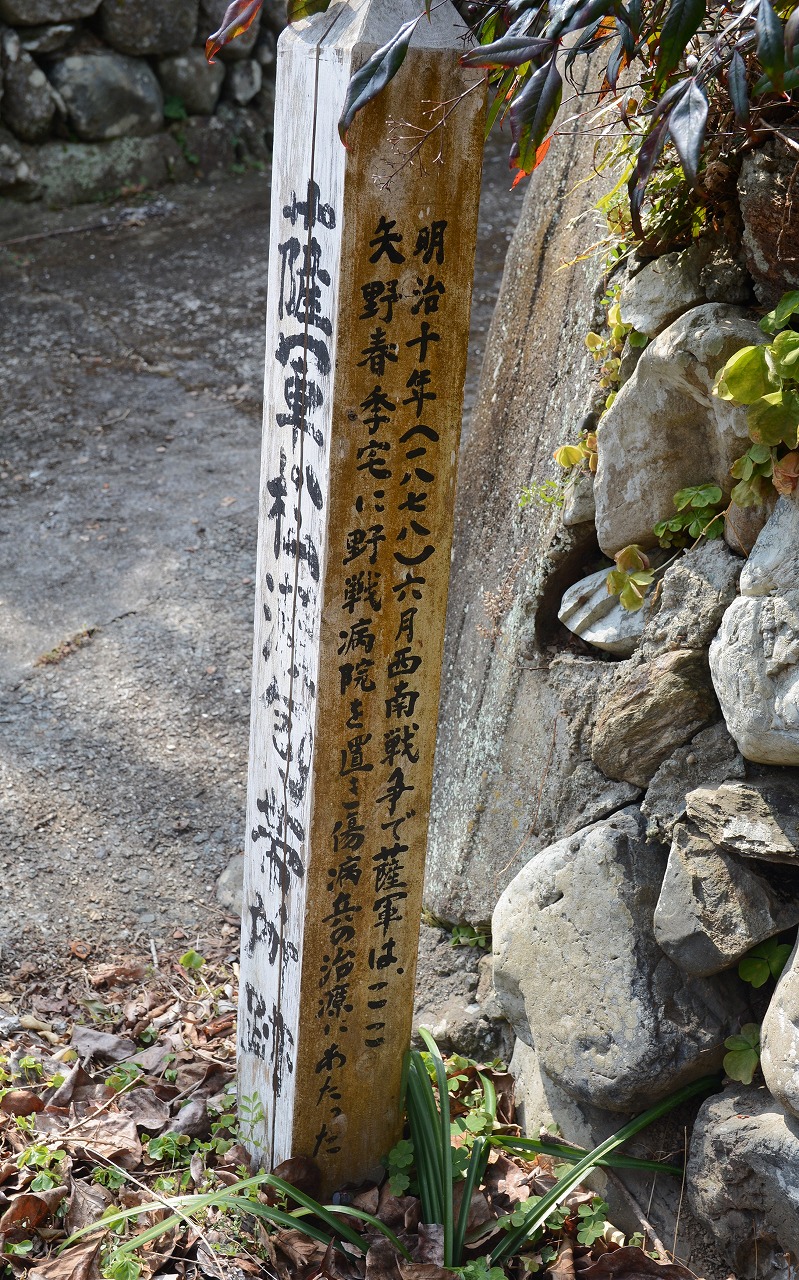 薩軍松瀬包帯所跡
明治十年(一八七八)六月西南戦争で薩軍は、ここ
矢野春季宅に野戦病院を置き傷病兵の治療にあたった